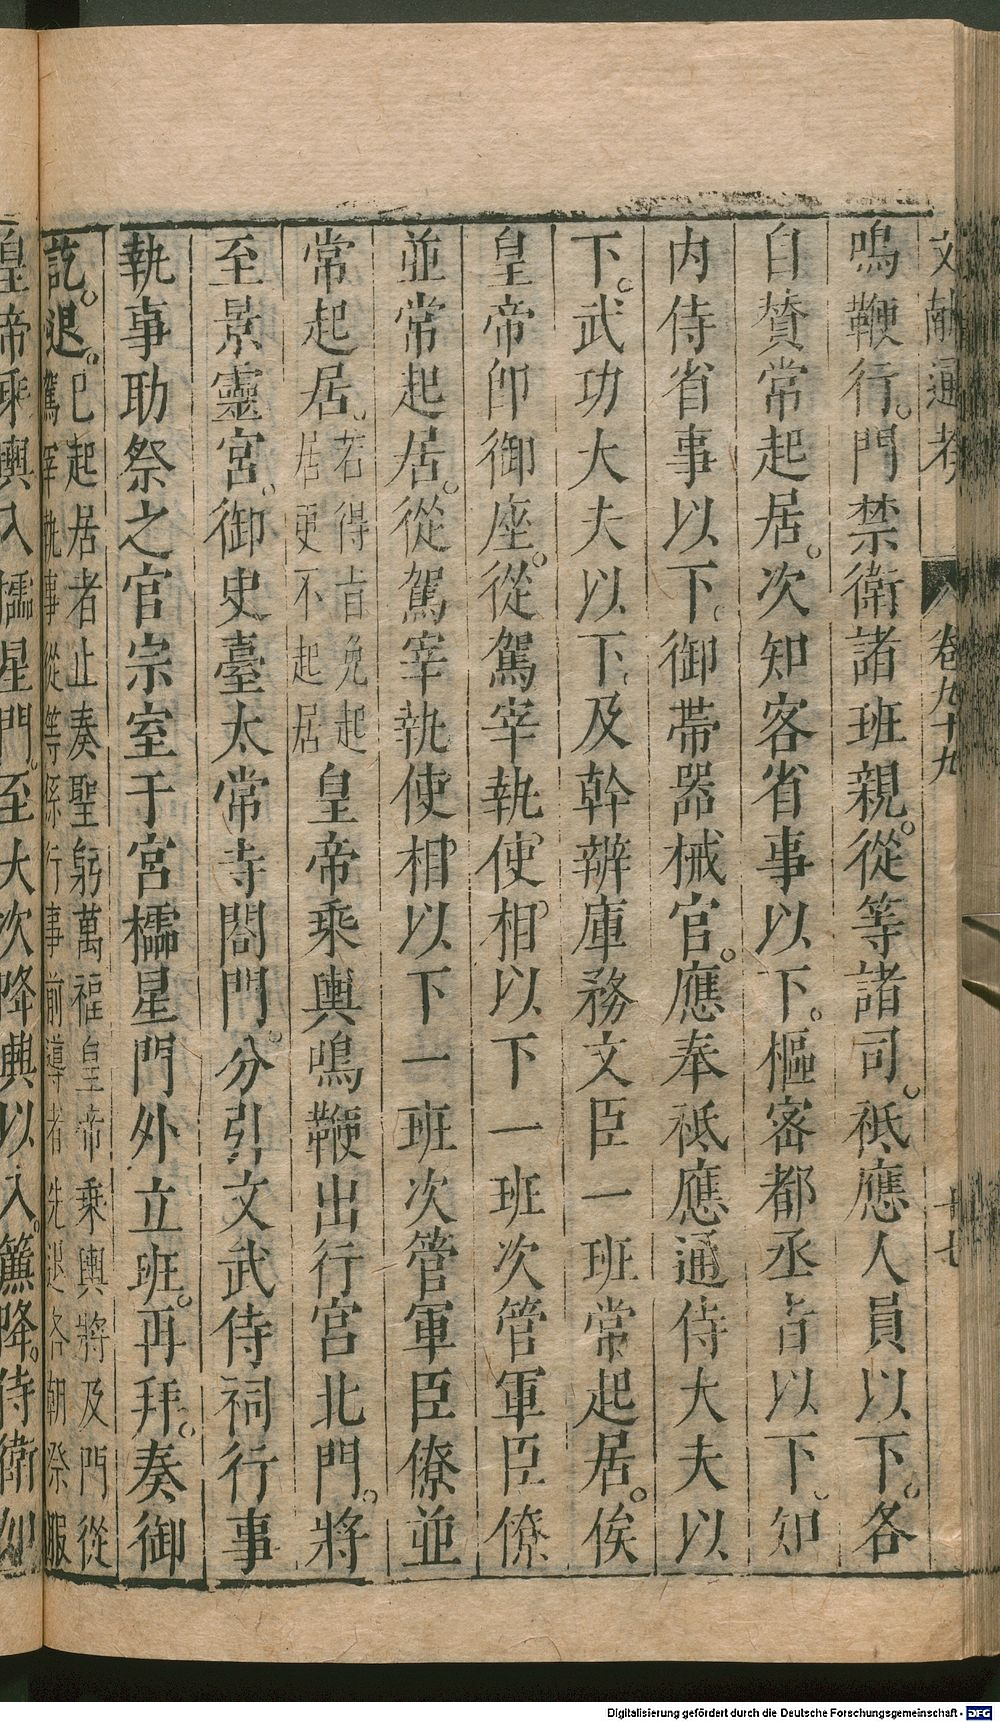 文獻通考 卷九十九 十七
鳴鞭行。門禁衛諸班親。從等諸司。祗應人員以下。各
自贊常起居。次知客省事以下。樞密都丞旨以下、知
内侍省事以下。御帶器械官。應奉祗應通侍大夫以
下。武功大夫以下、及幹辦庫務文臣一班常起居。俟
皇帝卽御座。從駕宰執、使、相以下一班次管軍臣僚
並常起居。從駕宰執、使、相以下一班次管軍臣僚並
常起居。若得旨免起居更不起居皇帝乘輿鳴鞭出行宮北門。將
至景靈宮。御史臺太常寺閤門。分引文武侍祠行事
執事助祭之官宗室于宮櫺星門外立班。再拜。奏御
訖。退。已起居者止奏聖躬萬福皇帝乘輿將及門從駕宰執事從等係行事前導者先退各朝祭服
皇帝乘輿入櫺星門。至大次降輿以入。簾降。侍衛如
Digitalisierung gefördert durch die Deutsche Forschungsgemeinschaft - DFG